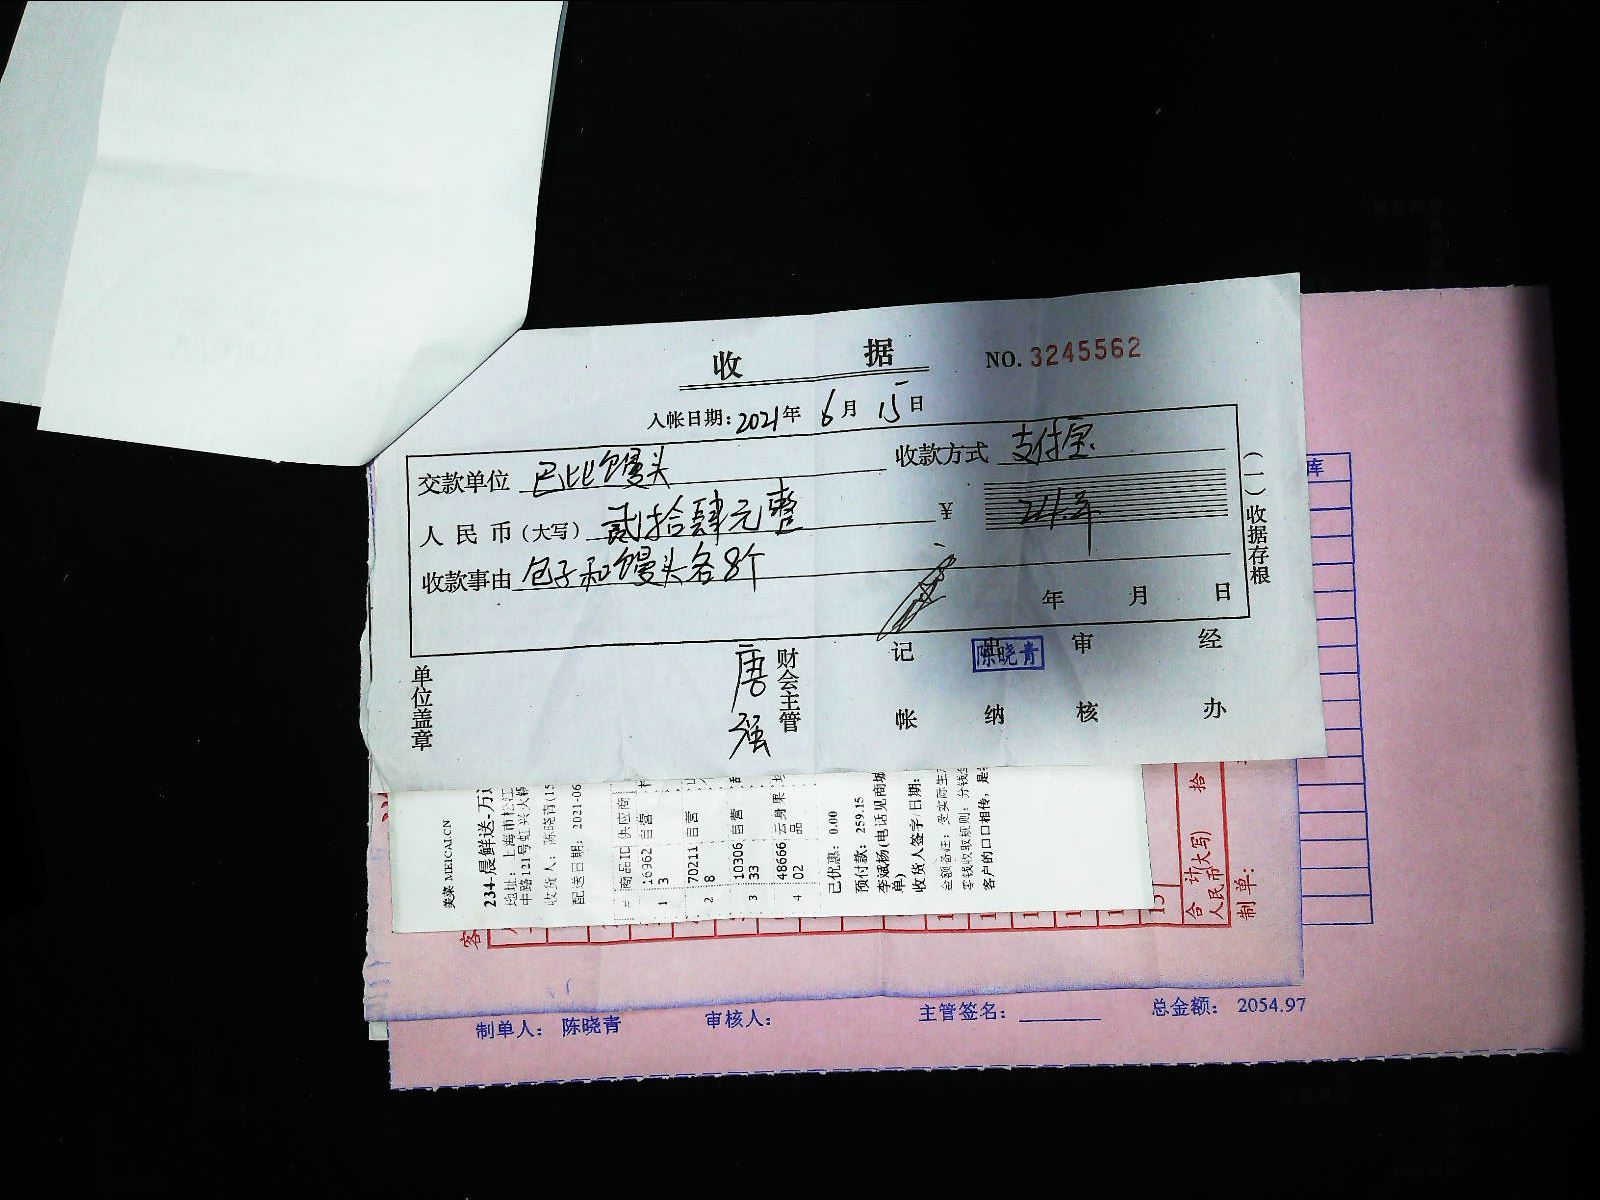 收 据
NO. 3245562
入帐日期: 2021年 6月 15日
交款单位 巴比馒头 收款方式 支付宝
人民币(大写) 贰拾肆元整 ¥
收款事由 包子和馒头各8个
年 月 日
(一)收据存根
单位盖章
财会主管
唐强
记帐
出纳
陈晓青
审核
经办
美菜 MEICAI.CN
234-晨鲜送-万
地址: 上海市松江
中路121号虹兴火
收货人: 陈晓青(15
配送日期: 2021-06
# 商品ID 供应商
1 16962 3 自营
2 70211 8 自营
3 10306 33 自营
4 48666 02 云身果品
已优惠: 0.00
预付款: 259.15
李斌杨(电话见商城
单)
收货人签字/日期:
金额备注: 受实际生
零钱收取规则: 分钱
客户的口口相传, 是
客
合计 拾
人民币(大写)
制单:
库
制单人: 陈晓青 审核人: 主管签名: 总金额: 2054.97